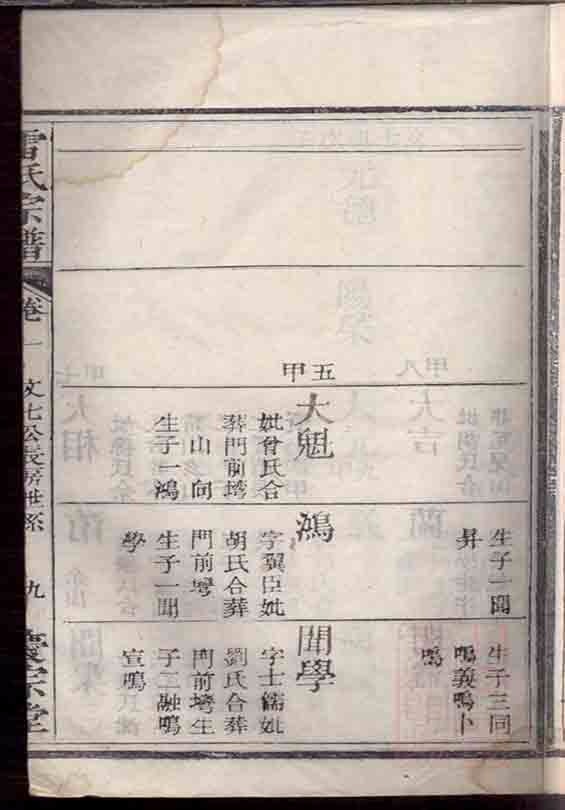 生子一聞
昇
生子三同
鳴義鳴卜
鳴
五甲
大魁
妣曾氏合
葬門前塆
山向
生子一鴻
鴻
字翼臣妣
胡氏合葬
門前塆
生子一聞
學
聞學
字士儒妣
劉氏合葬
門前塆生
子二融鳴
宣鳴
雷氏宗譜
卷一
文七公長房世系
九